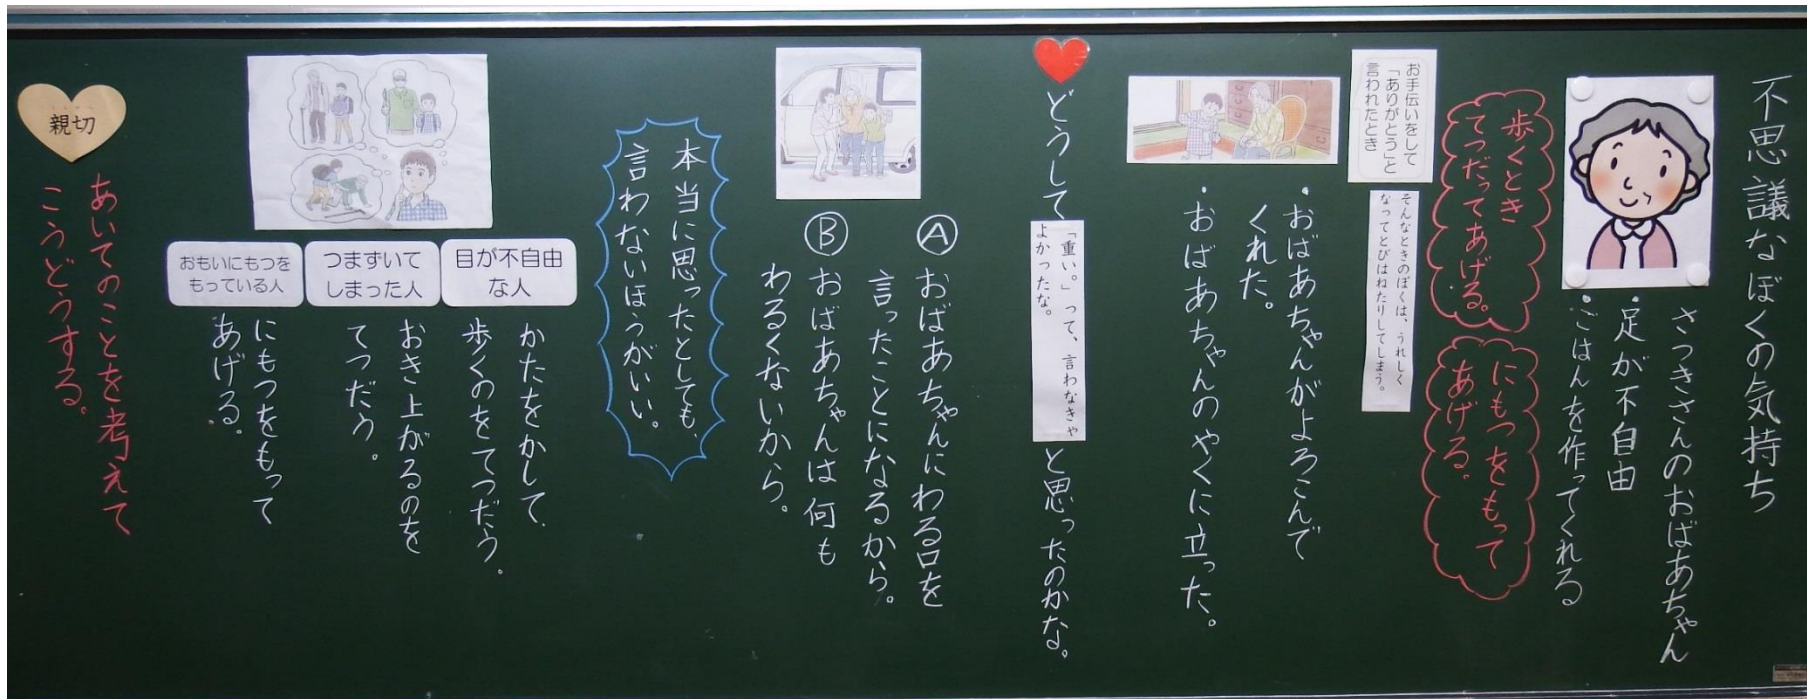 不思議なぼくの気持ち
さつきさんのおばあちゃん
・足が不自由
・ごはんを作ってくれる
歩くとき
てつだってあげる。
にもつをもって
あげる。
お手伝いをして
「ありがとう」と
言われたとき
そんなときのぼくは、うれしく
なってとびはねたりしてしまう。
・おばあちゃんがよろこんで
くれた。
・おばあちゃんのやくに立った。
どうして
「重い。」って、言わなきゃ
よかったな。
と思ったのかな。
Ⓐおばあちゃんにわる口を
言ったことになるから。
Ⓑおばあちゃんは何も
わるくないから。
本当に思ったとしても、
言わないほうがいい。
目が不自由
な人
かたをかして、
歩くのをてつだう。
つまずいて
しまった人
おき上がるのを
てつだう。
おもいにもつを
もっている人
にもつをもって
あげる。
親切
あいてのことを考えて
こうどうする。